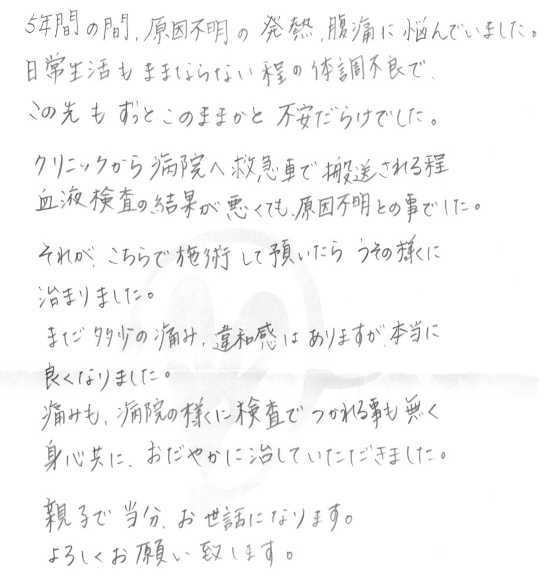 5年間の間、原因不明の発熱、腹痛に悩んでいました。
日常生活もままならない程の体調不良で、
この先もずっとこのままかと不安だらけでした。
クリニックから病院へ救急車で搬送される程
血液検査の結果が悪くても、原因不明との事でした。
それが、こちらで施術して預いたらうその様くに
治まりました。
まだ多少の痛み、違和感はありますが、本当に
良くなりました。
痛みも、病院の様くに検査でつかれる事も無く
身心共に、おだやかに治していただきました。
親子で当分、お世話になります。
よろしくお願い致します。